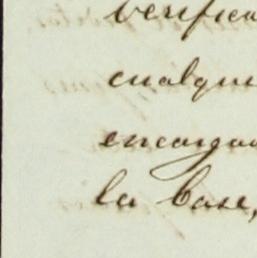 verifica
cualqui
encarga
la base,